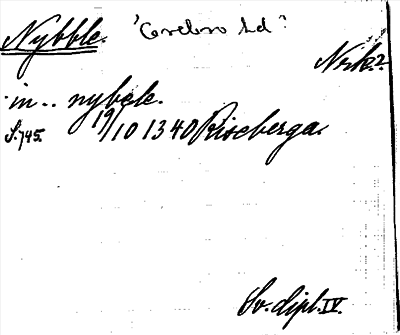 Nybble. 'Örebro Ld?
Nrk.?
in.. nybele.
S. 745. 19/10 1340 Riseberga.
Sv. dipl. IV.